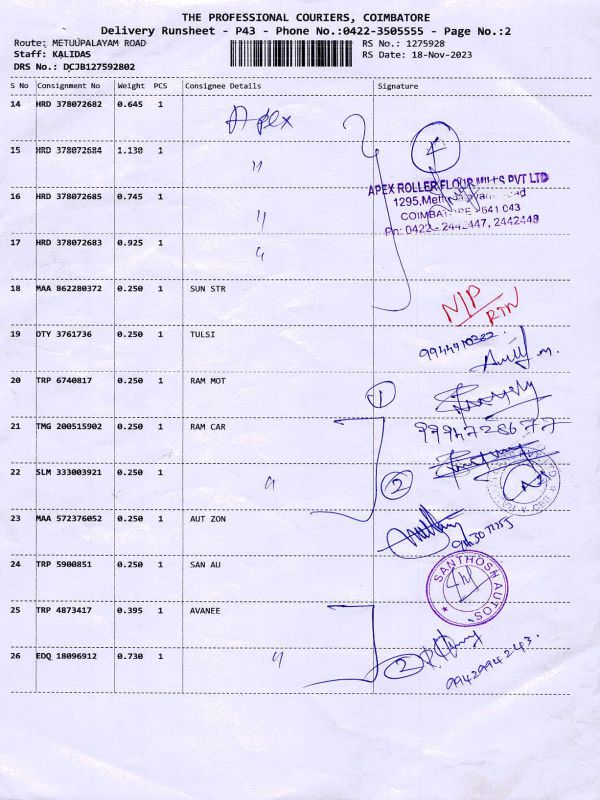 THE PROFESSIONAL COURIERS, COIMBATORE
Delivery Runsheet - P43 - Phone No.:0422-3505555 - Page No.:2
Route: METUUPALAYAM ROAD RS No.: 1275928
Staff: KALIDAS RS Date: 18-Nov-2023
DRS No.: DCJB127592802
S No Consignment No Weight PCS Consignee Details Signature
14 HRD 378072682 0.645 1 Apex
4
15 HRD 378072684 1.130 1 "
APEX ROLLER FLOUR MILLS PVT LTD
16 HRD 378072685 0.745 1 "
COIMBATORE - 641 043
Ph: 0422 - 2442447, 2442448
17 HRD 378072683 0.925 1 "
18 MAA 862280372 0.250 1 SUN STR
N/P
RTN
19 DTY 3761736 0.250 1 TULSI
20 TRP 6740817 0.250 1 RAM MOT
1
21 TMG 200515902 0.250 1 RAM CAR
9994728677
22 SLM 333003921 0.250 1 "
2
23 MAA 572376052 0.250 1 AUT ZON
24 TRP 5900851 0.250 1 SAN AU
SANTHOSH AUTOS
25 TRP 4873417 0.395 1 AVANEE
26 EDQ 18096912 0.730 1 "
2
9942994243.